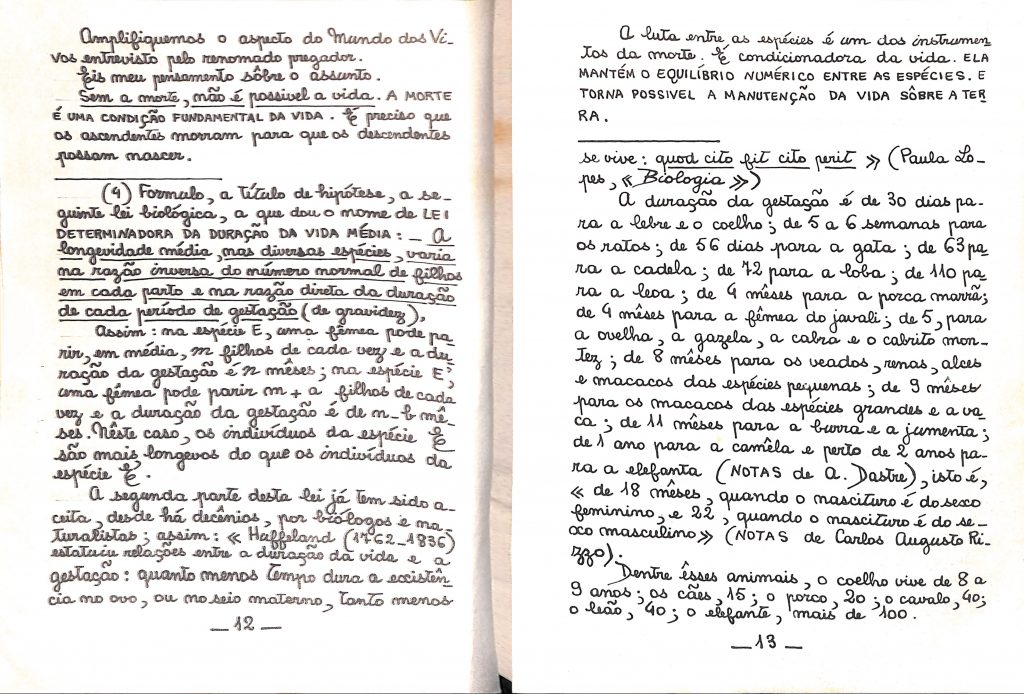 Amplifiquemos o aspecto do Mundo dos Vi-
vos entrevisto pelo renomado pregador.
Eis meu pensamento sôbre o assunto.
Sem a morte, não é possivel a vida. A MORTE
É UMA CONDIÇÃO FUNDAMENTAL DA VIDA. É preciso que
os ascendentes morram para que os descendentes
possam nascer.
(4) Formulo, a título de hipótese, a se-
guinte lei biológica, a que dou o nome de LEI
DETERMINADORA DA DURAÇÃO DA VIDA MÉDIA: _ A
longevidade média, nas diversas espécies, varia
na razão inversa do número normal de filhos
em cada parto e na razão direta da duração
de cada período de gestação (de gravidez).
Assim: na espécie E, uma fêmea pode pa-
rir, em média, m filhos de cada vez e a du-
ração da gestação é n mêses; na espécie E',
uma fêmea pode parir m + a filhos de cada
vez e a duração da gestação é de n-b mê-
ses. Nêste caso, os indivíduos da espécie E
são mais longevos do que os indivíduos da
espécie E'.
A segunda parte desta lei já tem sido a-
ceita, desde há decênios, por biólogos e na-
turalistas; assim: « Huffeland (1762_1836)
estatuiu relações entre a duração da vida e a
gestação: quanto menos tempo dura a existên-
cia no ovo, ou no seio materno, tanto menos
_ 12 _
A luta entre as espécies é um dos instrumen-
tos da morte. É condicionadora da vida. ELA
MANTÉM O EQUILÍBRIO NUMÉRICO ENTRE AS ESPÉCIES. E
TORNA POSSIVEL A MANUTENÇÃO DA VIDA SÔBRE A TER-
RA.
se vive: quod cito fit cito perit » (Paula Lo-
pes, « Biologia »)
A duração da gestação é de 30 dias pa-
ra a lebre e o coelho; de 5 a 6 semanas para
os ratos; de 56 dias para a gata; de 63 pa-
ra a cadela; de 72 para a loba; de 110 pa-
ra a leoa; de 4 mêses para a porca marrã;
de 4 mêses para a fêmea do javali; de 5, para
a ovelha, a gazela, a cabra e o cabrito mon-
tez; de 8 mêses para os veados, renas, alces
e macacos das espécies pequenas; de 9 mêses
para os macacos das espécies grandes e a va-
ca; de 11 mêses para a burra e a jumenta;
de 1 ano para a camêla e perto de 2 anos pa-
ra a elefanta (NOTAS de A. Dastre), isto é,
« de 18 mêses, quando o nascituro é do sexo
feminino, e 22, quando o nascituro é do se-
xo masculino» (NOTAS de Carlos Augusto Ri-
zzo).
Dentre êsses animais, o coelho vive de 8 a
9 anos; os cães, 15; o porco, 20; o cavalo, 40;
o leão, 40; o elefante, mais de 100.
_ 13 _